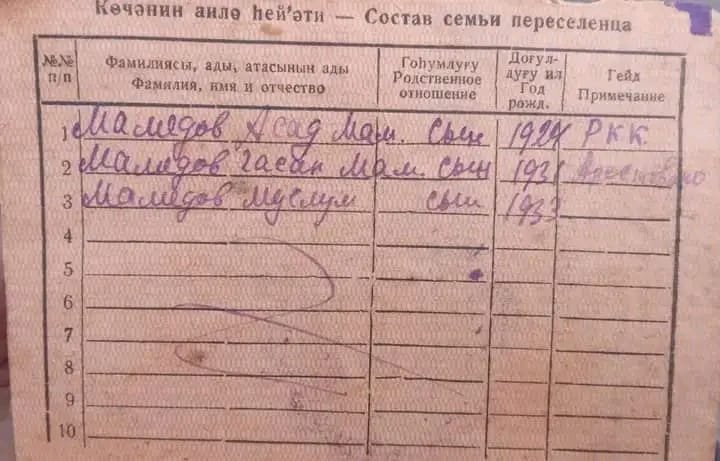 Көчәнин аилә һеј'әти — Состав семьи переселенца
№№ п/п
Фамилиясы, ады, атасынын ады
Фамилия, имя и отчество
Гоһумлуғу
Родственное
отношение
Доғул-
дуғу ил
Год
рожд.
Гејд
Примечание
1 Мамедов Асад Мам. сын 1924 РКК.
2 Мамедов Гасан Мам. сын 1931
3 Мамедов Муслум сын 1933
4
5
6
7
8
9
10